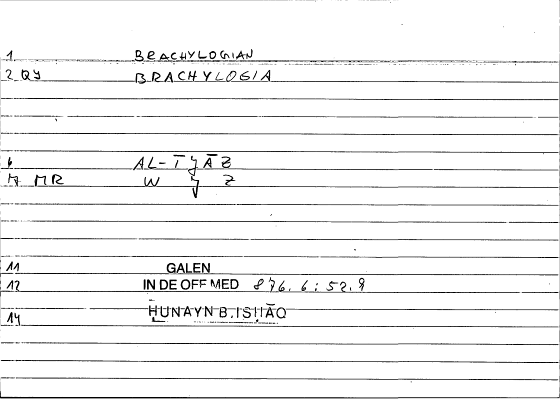 1 BRACHYLOGIAN
2 QY BRACHYLOGIA
6 AL-ĪǧĀZ
MR W ǧ Z
11 GALEN
12 IN DE OFF MED 876.6:52.9
14 ḤUNAYN B.ISḤĀQ